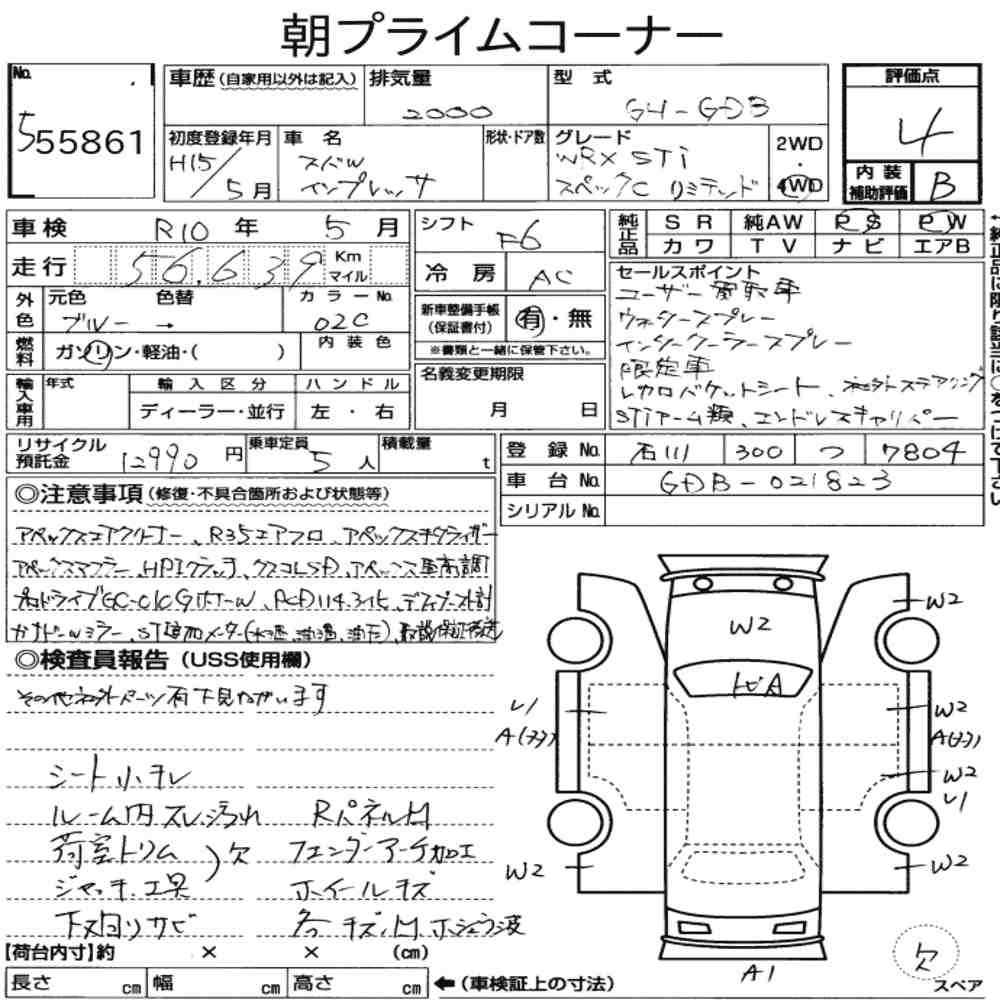 朝プライムコーナー
No.
555861
車歴 (自家用以外は記入)
排気量
2000
型 式
GH-GDB
評価点
4
初度登録年月
H15/5月
車 名
スバル
インプレッサ
形状・ドア数
グレード
WRX STi
スペックC リミテッド
2WD
・
4WD
内 装
補助評価
B
車 検 R10 年 5 月
走 行 56,639 Km
マイル
外色
元色 色替
ブルー →
カラーNo.
02C
燃料
ガソリン・軽油・( )
内 装 色
輸入車用
年式
輸 入 区 分
ディーラー・並行
ハ ン ド ル
左 ・ 右
シフト F6
冷 房 AC
新車整備手帳
(保証書付)
有・無
※書類と一緒に保管下さい。
名義変更期限
月 日
純正品
S R 純AW P S P W
カ ワ T V ナ ビ エアB
セールスポイント
ユーザー買取車
ウォータースプレー
インタークーラースプレー
限定車
レカロバケットシート、社外ステアリング
STiアーム類、エンドレスキャリパー
←純正品に限り該当に○をつけて下さい
リサイクル
預託金
12990 円
乗車定員
5 人
積載量
t
登 録 No. 石川 300 つ 7804
車 台 No. GDB-021823
シリアル No.
◎注意事項 (修復・不具合箇所および状態等)
アペックスエアクリーナー、R35エアフロ、アペックス
アペックスマフラー、HPIクラッチ、クスコLSD、アペックス車高調
プロドライブGC-010G PCD114.3化、
ミラー、ST追加メーター(水温、油温、油圧)、
◎検査員報告 (USS使用欄)
その他社外パーツ有 下見ねがいます
シート小キレ
ルーム内スレ汚れ Rパネル凹
荷室トリム
ジャッキ、工具
欠
フェンダーアーチ加工
ホイールキズ
下又回りサビ 各キズ、凹、ホシュウ波
【荷台内寸】約 × × (cm)
長さ cm 幅 cm 高さ cm ←(車検証上の寸法)
W2
W2
トビA
W2
A(ヌヌ)
W2
W2
W2
A1
欠
スペア